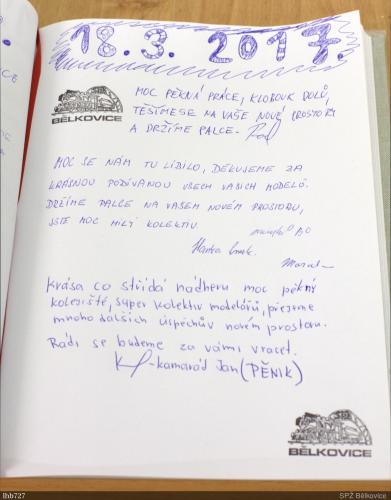 18.3.2017.
MOC PĚKNÁ PRÁCE, KLOBOUK DOLŮ,
TĚŠÍME SE NA VAŠE NOVÉ PROSTORY
A DRŽÍME PALCE.
BĚLKOVICE
MOC SE NÁM TU LÍBILO, DĚKUJEME ZA
KRÁSNOU PODÍVANOU VŠECH VAŠICH MODELŮ.
DRŽÍME PALCE NA VAŠEM NOVÉM PROSTORU,
JSTE MOC MILÝ KOLEKTIV
Hanka
Krása co střídá nádheru moc pěkný
kolejiště, super kolektiv modelářů, přejeme
mnoho dalších úspěchů v novém prostoru.
Rádi se budeme za vámi vracet.
-kamarád Jan (PĚNIK)
BĚLKOVICE
lhb727
SPŽ Bělkovice